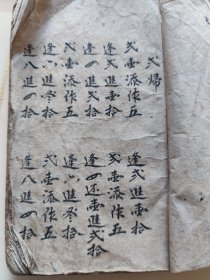 弍歸
弍壹添作五
逢弍進壹拾
逢四進弍拾
弍壹添作五
逢六進叁拾
逢八進四拾
逢弍進壹拾
弍壹添作五
逢四還壹進弍拾
逢六進叁拾
弍壹添作五
逢八進四拾